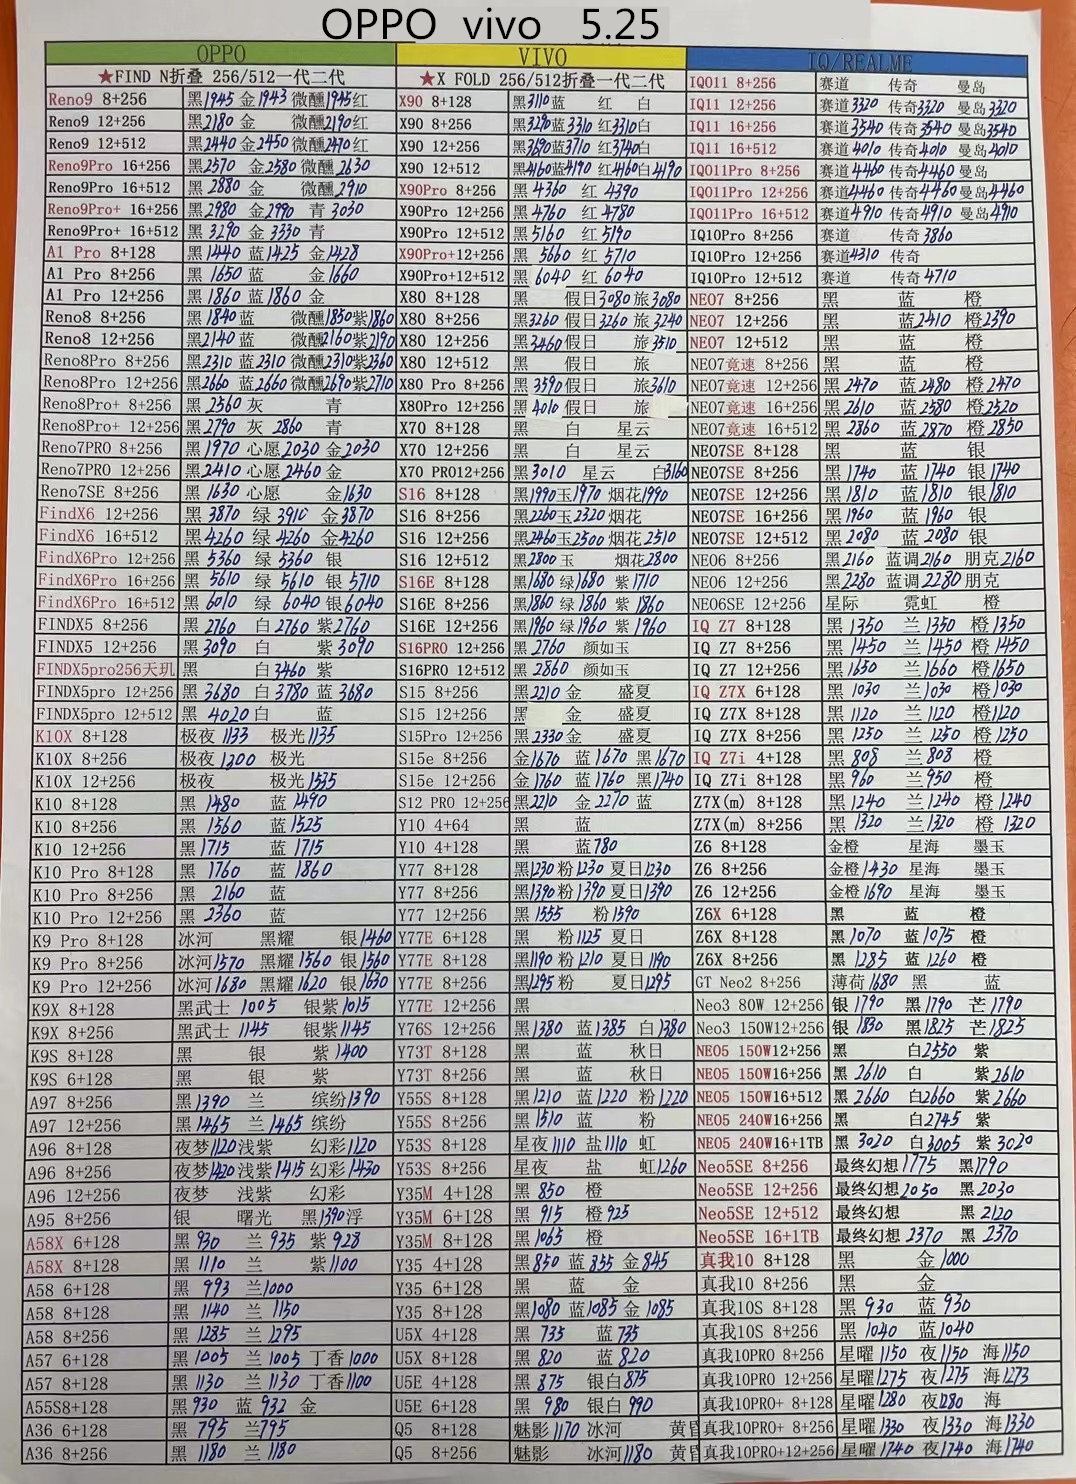 OPPO vivo 5.25
OPPO
★FIND N折叠 256/512一代二代
Reno9 8+256 黑1945 金1943 微醺1945红
Reno9 12+256 黑2180 金 微醺2190红
Reno9 12+512 黑2440 金2450 微醺2470红
Reno9Pro 16+256 黑2570 金2580 微醺2630
Reno9Pro 16+512 黑2880 金 微醺2910
Reno9Pro+ 16+256 黑2980 金2990 青3030
Reno9Pro+ 16+512 黑3290 金3330 青
A1 Pro 8+128 黑1440 蓝1425 金1428
A1 Pro 8+256 黑1650 蓝 金1660
A1 Pro 12+256 黑1860 蓝1860 金
Reno8 8+256 黑1840 蓝 微醺1850紫1860
Reno8 12+256 黑2140 蓝 微醺2160紫2190
Reno8Pro 8+256 黑2310 蓝2310 微醺2310紫2360
Reno8Pro 12+256 黑2660 蓝2660 微醺2690紫2710
Reno8Pro+ 8+256 黑2560 灰 青
Reno8Pro+ 12+256 黑2790 灰2860 青
Reno7PRO 8+256 黑1970 心愿2030 金2030
Reno7PRO 12+256 黑2410 心愿2460 金
Reno7SE 8+256 黑1630 心愿 金1630
FindX6 12+256 黑3870 绿3910 金3870
FindX6 16+512 黑4260 绿4260 金4260
FindX6Pro 12+256 黑5360 绿5360 银
FindX6Pro 16+256 黑5610 绿5610 银5710
FindX6Pro 16+512 黑6010 绿6040 银6040
FINDX5 8+256 黑2760 白2760 紫2760
FINDX5 12+256 黑3090 白 紫3090
FINDX5pro256天玑 黑 白3460 紫
FINDX5pro 12+256 黑3680 白3780 蓝3680
FINDX5pro 12+512 黑4020 白 蓝
K10X 8+128 极夜1133 极光1135
K10X 8+256 极夜1200 极光
K10X 12+256 极夜 极光1535
K10 8+128 黑1480 蓝1490
K10 8+256 黑1560 蓝1525
K10 12+256 黑1715 蓝1715
K10 Pro 8+128 黑1760 蓝1860
K10 Pro 8+256 黑2160 蓝
K10 Pro 12+256 黑2360 蓝
K9 Pro 8+128 冰河 黑耀 银1460
K9 Pro 8+256 冰河1570 黑耀1560 银1560
K9 Pro 12+256 冰河1680 黑耀1620 银1630
K9X 8+128 黑武士1005 银紫1015
K9X 8+256 黑武士1145 银紫1145
K9S 8+128 黑 银 紫1400
K9S 6+128 黑 银 紫
A97 8+256 黑1390 兰 缤纷1390
A97 12+256 黑1465 兰1465 缤纷
A96 8+128 夜梦1120浅紫 幻彩1120
A96 8+256 夜梦1420浅紫1415幻彩1430
A96 12+256 夜梦 浅紫 幻彩
A95 8+256 银 曙光 黑1390浮
A58X 6+128 黑930 兰935 紫928
A58X 8+128 黑1110 兰 紫1100
A58 6+128 黑993 兰1000
A58 8+128 黑1140 兰1150
A58 8+256 黑1285 兰1295
A57 6+128 黑1005 兰1005 丁香1000
A57 8+128 黑1130 兰1130 丁香1100
A55S8+128 黑930 蓝932 金
A36 6+128 黑795 兰795
A36 8+256 黑1180 兰1180
VIVO
★X FOLD 256/512折叠一代二代
X90 8+128 黑3110蓝 红 白
X90 8+256 黑3290蓝3310 红3310白
X90 12+256 黑3690蓝3710 红3740白
X90 12+512 黑4160蓝4190 红4160白4190
X90Pro 8+256 黑4360 红4390
X90Pro 12+256 黑4760 红4780
X90Pro 12+512 黑5160 红5190
X90Pro+12+256 黑5660 红5710
X90Pro+12+512 黑6040 红6040
X80 8+128 黑 假日3080旅3080
X80 8+256 黑3260 假日3260 旅3240
X80 12+256 黑3460假日 旅3510
X80 12+512 黑 假日 旅
X80 Pro 8+256 黑3590假日 旅3610
X80Pro 12+256 黑4010假日 旅
X70 8+128 黑 白 星云
X70 12+256 黑 白 星云
X70 PRO12+256 黑3010 星云 白3160
S16 8+128 黑1990玉1970 烟花1990
S16 8+256 黑2260玉2320 烟花
S16 12+256 黑2460玉2500 烟花2510
S16 12+512 黑2800玉 烟花2800
S16E 8+128 黑1680绿1680 紫1710
S16E 8+256 黑1860绿1860 紫1860
S16E 12+256 黑1960绿1960 紫1960
S16PRO 12+256 黑2760 颜如玉
S16PRO 12+512 黑2860 颜如玉
S15 8+256 黑2210 金 盛夏
S15 12+256 黑 金 盛夏
S15Pro 12+256 黑2330金 盛夏
S15e 8+256 金1670 蓝1670 黑1670
S15e 12+256 金1760 蓝1760 黑1740
S12 PRO 12+256 黑2210 金2270 蓝
Y10 4+64 黑 蓝
Y10 4+128 黑 蓝780
Y77 8+128 黑1230粉1230 夏日1230
Y77 8+256 黑1390粉1390 夏日1390
Y77 12+256 黑1555 粉1590
Y77E 6+128 黑 粉1125 夏日
Y77E 8+128 黑1190粉1210 夏日1190
Y77E 8+256 黑1295粉 夏日1295
Y77E 12+256 黑
Y76S 12+256 黑1380 蓝1385 白1380
Y73T 8+128 黑 蓝 秋日
Y73T 8+256 黑 蓝 秋日
Y55S 8+128 黑1210 蓝1220 粉1220
Y55S 8+256 黑1510 蓝 粉
Y53S 8+128 星夜1110 盐1110 虹
Y53S 8+256 星夜 盐 虹1260
Y35M 4+128 黑850 橙
Y35M 6+128 黑915 橙925
Y35M 8+128 黑1065 橙
Y35 4+128 黑850 蓝855 金845
Y35 6+128 黑 蓝 金
Y35 8+128 黑1080 蓝1085 金1085
U5X 4+128 黑735 蓝735
U5X 8+128 黑820 蓝820
U5E 4+128 黑875 银白875
U5E 6+128 黑980 银白990
Q5 8+128 魅影1170冰河 黄昏
Q5 8+256 魅影 冰河1180 黄昏
IQ/REALME
IQO11 8+256 赛道 传奇 曼岛
IQ11 12+256 赛道3320传奇3320 曼岛3320
IQ11 16+256 赛道3540传奇3540 曼岛3540
IQ11 16+512 赛道4010传奇4010 曼岛4010
IQO11Pro 8+256 赛道4460传奇4460 曼岛
IQO11Pro 12+256 赛道4460传奇4460 曼岛4460
IQO11Pro 16+512 赛道4910传奇4910 曼岛4910
IQ10Pro 8+256 赛道 传奇3860
IQ10Pro 12+256 赛道4310 传奇
IQ10Pro 12+512 赛道 传奇4710
NEO7 8+256 黑 蓝 橙
NEO7 12+256 黑 蓝2410 橙2390
NEO7 12+512 黑 蓝 橙
NEO7竟速 8+256 黑 蓝 橙
NEO7竟速 12+256 黑2470 蓝2480 橙2470
NEO7竟速 16+256 黑2610 蓝2580 橙2520
NEO7竟速 16+512 黑2860 蓝2870 橙2850
NEO7SE 8+128 黑 蓝 银
NEO7SE 8+256 黑1740 蓝1740 银1740
NEO7SE 12+256 黑1810 蓝1810 银1810
NEO7SE 16+256 黑1960 蓝1960 银
NEO7SE 12+512 黑2080 蓝2080 银
NEO6 8+256 黑2160 蓝调2160 朋克2160
NEO6 12+256 黑2280 蓝调2280朋克
NEO6SE 12+256 星际 霓虹 橙
IQ Z7 8+128 黑1350 兰1350 橙1350
IQ Z7 8+256 黑1450 兰1450 橙1450
IQ Z7 12+256 黑1650 兰1660 橙1650
IQ Z7X 6+128 黑1030 兰1030 橙1030
IQ Z7X 8+128 黑1120 兰1120 橙1120
IQ Z7X 8+256 黑1250 兰1250 橙1250
IQ Z7i 4+128 黑808 兰808 橙
IQ Z7i 8+128 黑960 兰950 橙
Z7X(m) 8+128 黑1240 兰1240 橙1240
Z7X(m) 8+256 黑1320 兰1320 橙1320
Z6 8+128 金橙 星海 墨玉
Z6 8+256 金橙1430 星海 墨玉
Z6 12+256 金橙1690 星海 墨玉
Z6X 6+128 黑 蓝 橙
Z6X 8+128 黑1070 蓝1075 橙
Z6X 8+256 黑1285 蓝1260 橙
GT Neo2 8+256 薄荷1680 黑 蓝
Neo3 80W 12+256 银1790 黑1790 芒1790
Neo3 150W12+256 银1830 黑1825 芒1825
NEO5 150W12+256 黑 白2550 紫
NEO5 150W16+256 黑2610 白 紫2610
NEO5 150W16+512 黑2660 白2660 紫2660
NEO5 240W16+256 黑 白2745 紫
NEO5 240W16+1TB 黑3020 白3005 紫3020
Neo5SE 8+256 最终幻想1775 黑1790
Neo5SE 12+256 最终幻想2050 黑2030
Neo5SE 12+512 最终幻想 黑2120
Neo5SE 16+1TB 最终幻想2370 黑2370
真我10 8+128 黑 金1000
真我10 8+256 黑 金
真我10S 8+128 黑930 蓝930
真我10S 8+256 黑1040 蓝1040
真我10PRO 8+256 星曜1150 夜1150 海1150
真我10PRO 12+256 星曜1275 夜1275 海1273
真我10PRO+ 8+128 星曜1280 夜1280 海
真我10PRO+ 8+256 星曜1330 夜1330 海1330
真我10PRO+12+256 星曜1740 夜1740 海1740